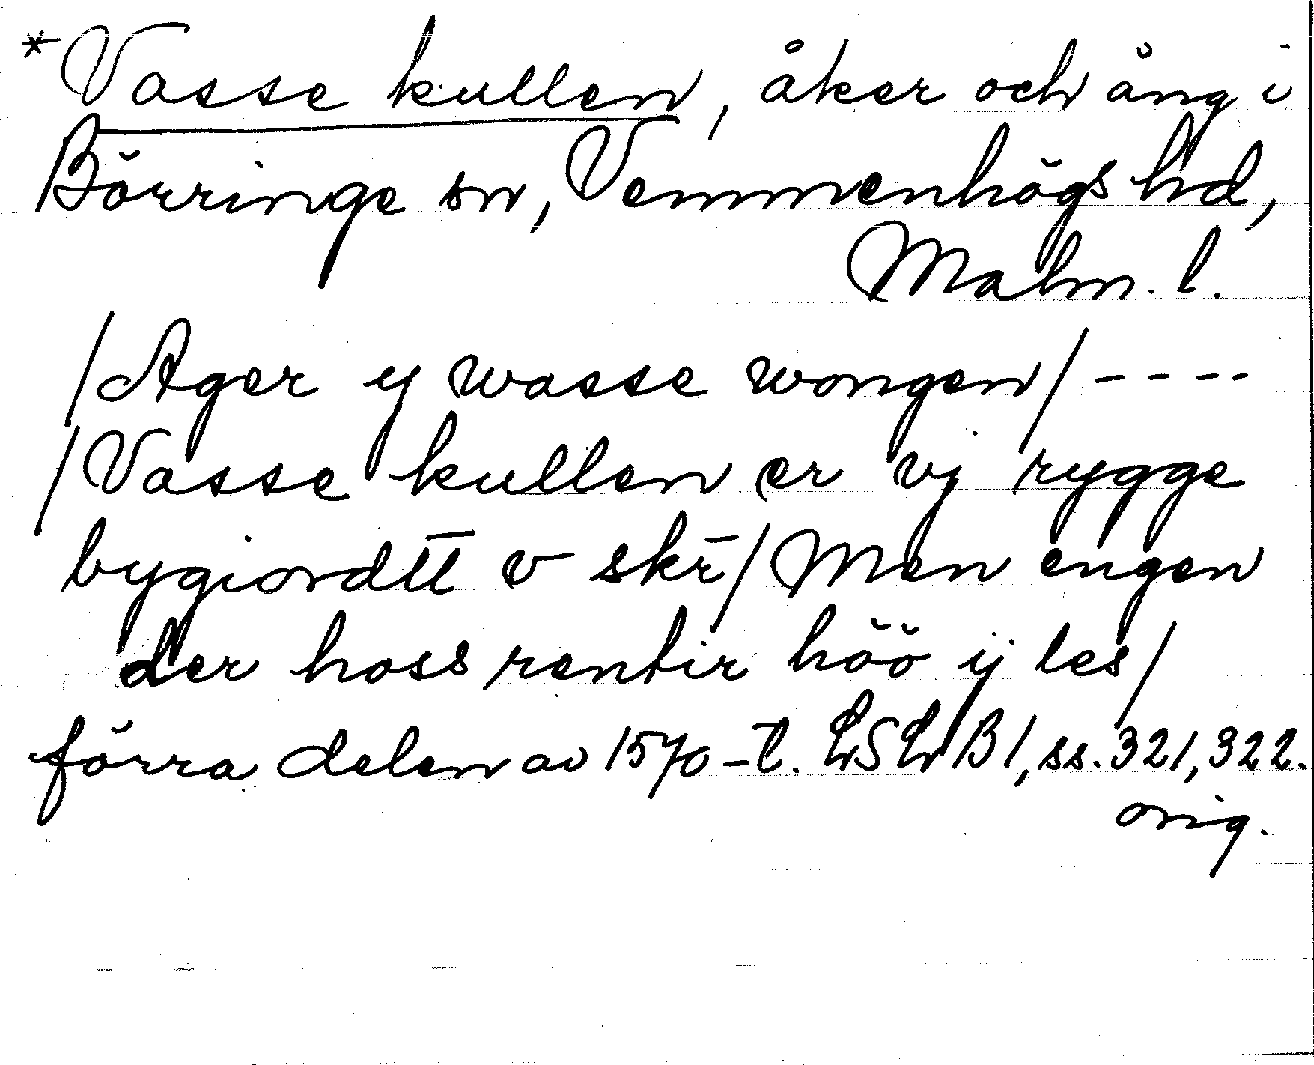 *Vasse kullen, åker och äng i
Börringe sn, Vemmenhögs hd,
Malm. l.
/Ager y wasse wongen/ ----
/Vasse kullen er vj rygge
bygiordtt v skr̄/ Men engen
der hoss rentir höö ij les/
förra delen av 1570-t. LSLB1, ss. 321, 322.
orig.